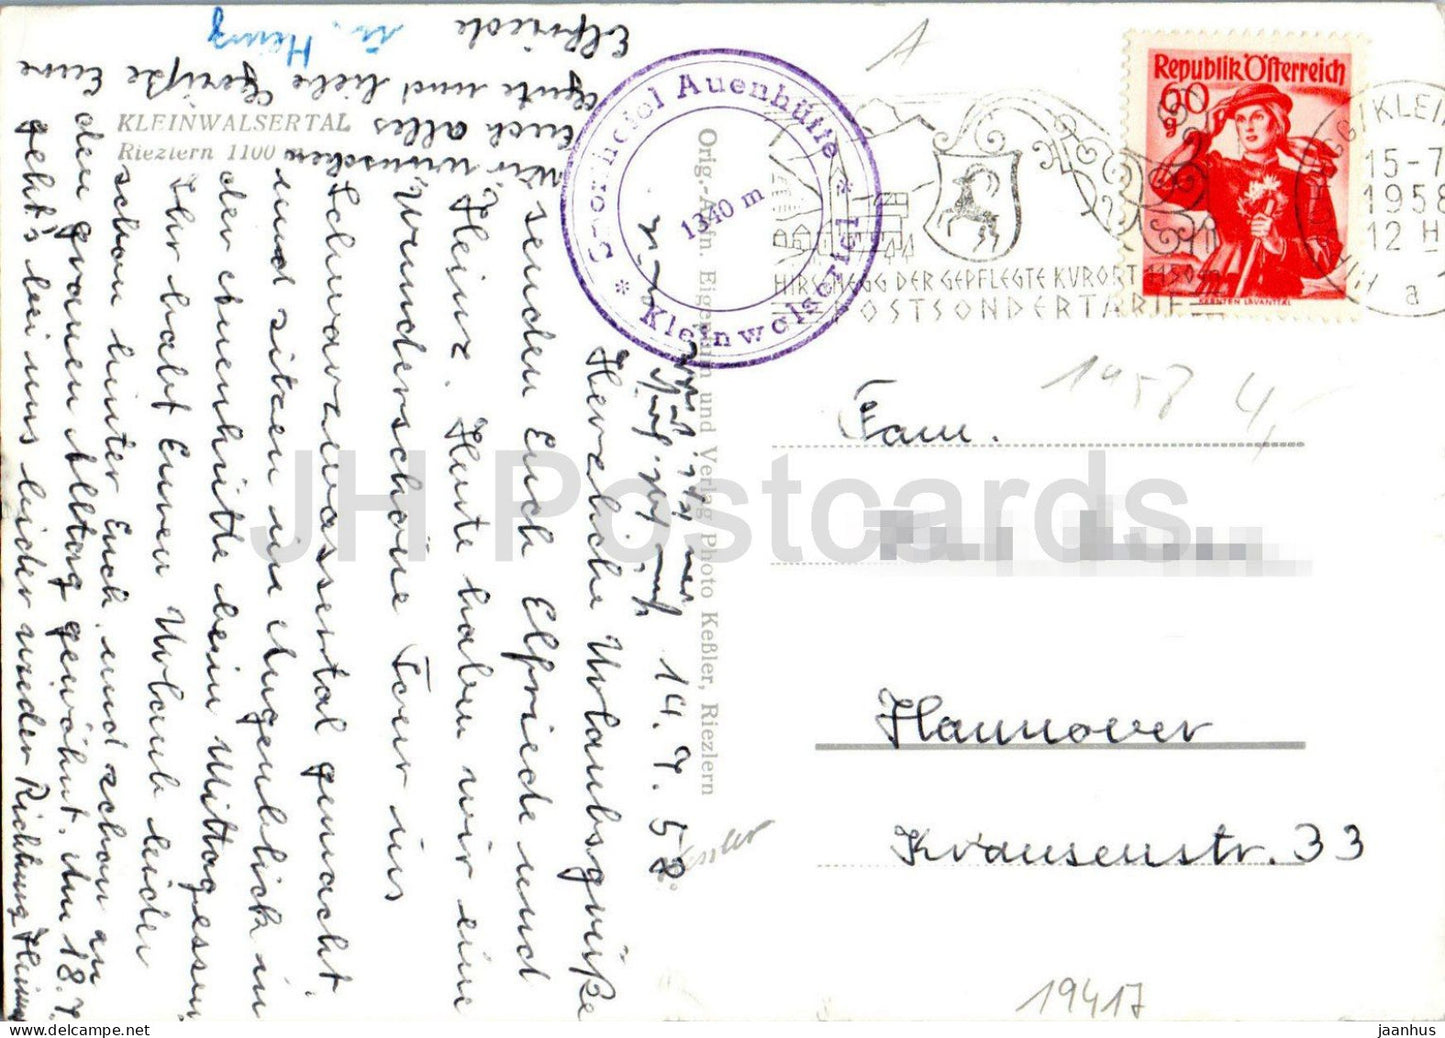 KLEINWALSERTAL
Riezlern 1100 m
14. 7. 58
Herzliche Urlaubsgrüße
senden Euch Elfriede und
Heinz. Heute haben wir eine
Wunderschöne Tour ins
Schwarzwassertal gemacht.
und sitzen im Augenblick in
der Auenhütte beim Mittagessen
Ihr habt Euren Urlaub leider
schon hinter Euch und schon an
den grauen Alltag gewöhnt. Am 18.7.
geht's bei uns leider wieder Richtung Heimat
Wir wünschen
Euch alles
Gute und liebe Grüße Eure
Elfriede
u. Heinz
Sporthotel Auenhütte
* Kleinwalsertal *
1340 m
Orig.-Aufn. Eigentum und Verlag Photo Keßler, Riezlern
HIRSCHEGG DER GEPFLEGTE KURORT 1150m
POSTSONDERTARIF
Republik Österreich
60
g
KÄRNTEN LAVANTTAL
HIRSCHEGG/KLEIN
15-7
1958
12 H
a
1958 4,-
Fam.
Hannover
Krausenstr. 33
19417
JH Postcards
jaanhus
www.delcampe.net